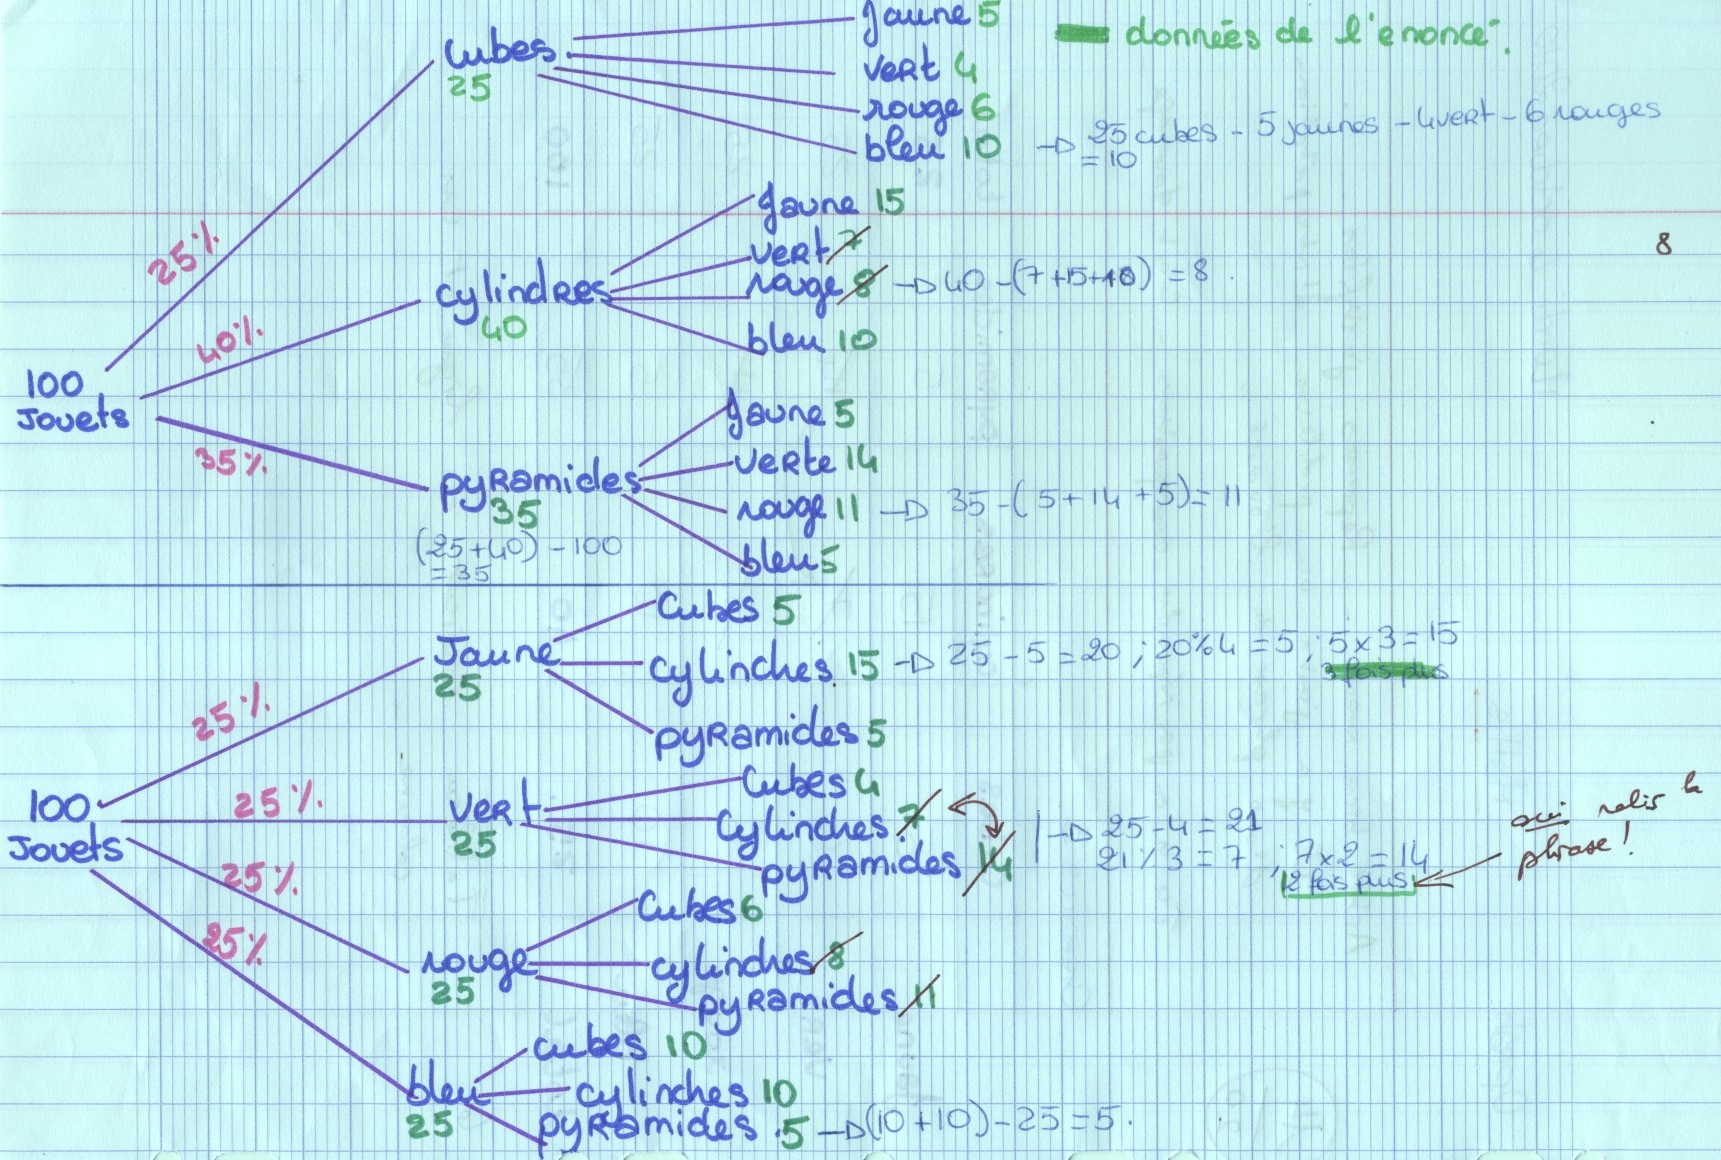 données de l'énoncé.
Cubes
25
Jaune 5
vert 4
rouge 6
bleu 10
→ 25 cubes - 5 jaunes - 4 vert - 6 rouges
= 10
25%
Jaune 15
vert 7
rouge 8 → 40 - (7+15+10) = 8.
bleu 10
8
cylindres
40
40%
100
Jouets
35%
Jaune 5
verte 14
rouge 11 → 35 - (5+14+5) = 11
bleu 5
pyramides
35
(25+40) - 100
= 35
Cubes 5
Jaune
25
cylindres 15 → 25 - 5 = 20 ; 20%4 = 5 ; 5x3 = 15
3 fois plus
pyramides 5
25%
100
Jouets
25%
vert
25
Cubes 4
cylindres 7
pyramides 14
→ 25 - 4 = 21
21 / 3 = 7 ; 7x2 = 14
2 fois plus
phrase!
25%
rouge
25
Cubes 6
cylindres 8
pyramides 11
25%
bleu
25
cubes 10
cylindres 10
pyramides 5 → (10+10) - 25 = 5.